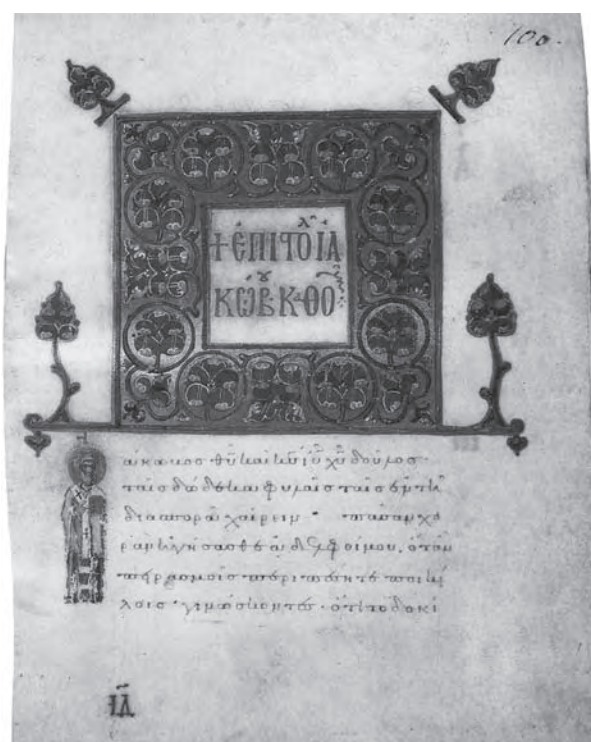 100.
+ἐπιτοιλ ΙΑ
ΚΩΒ·Κ·ΘΟ
ἀκωβος· θῦ καὶ κῦ ἰῦ χῦ δοῦλος·
ταῖς δώδεκα φυλαῖς ταῖς ἐν τῆ
διασπορᾶ χαίρειν· πᾶσαν χα
ρὰν ἡγήσασθε ἀδελφοί μου, ὅταν
πειρασμοῖς περιπέσητε ποικί
λοις· γινώσκοντες· ὅτι τὸ δοκί
ΙΔ